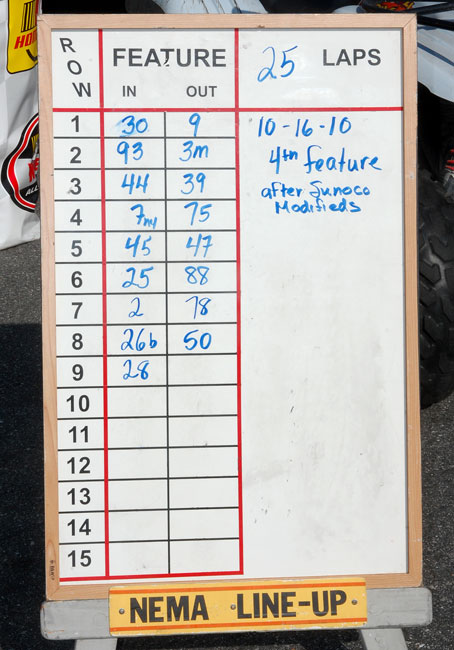 ROW FEATURE 25 LAPS
IN OUT
1 30 9 10-16-10
2 93 3m 4th feature
3 44 39 after Sunoco
4 7ny 75 Modifieds
5 45 47
6 25 88
7 2 78
8 26b 50
9 28
10
11
12
13
14
15
NEMA LINE-UP